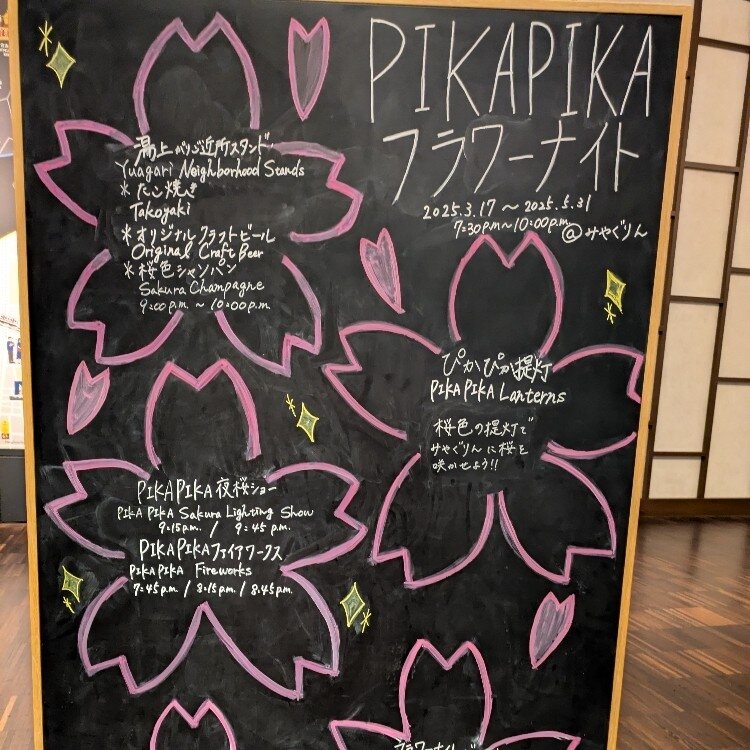 PIKAPIKA
フラワーナイト
2025.3.17〜2025.5.31
7:30p.m〜10:00p.m.
@みやぐりん
湯上がりご近所スタンド
Yuagari Neighborhood Stands
*たこ焼き
Takoyaki
*オリジナルクラフトビール
Original Craft Beer
*桜色シャンパン
Sakura Champagne
9:00p.m.〜10:00p.m.
ぴかぴか提灯
PIKAPIKA Lanterns
桜色の提灯で
みやぐりんに桜を
咲かせよう!!
PIKAPIKA夜桜ショー
PIKAPIKA Sakura Lighting Show
9:15p.m. / 9:45p.m.
PIKAPIKAファイアワークス
PIKAPIKA Fireworks
7:45p.m. / 8:15p.m. / 8:45p.m.